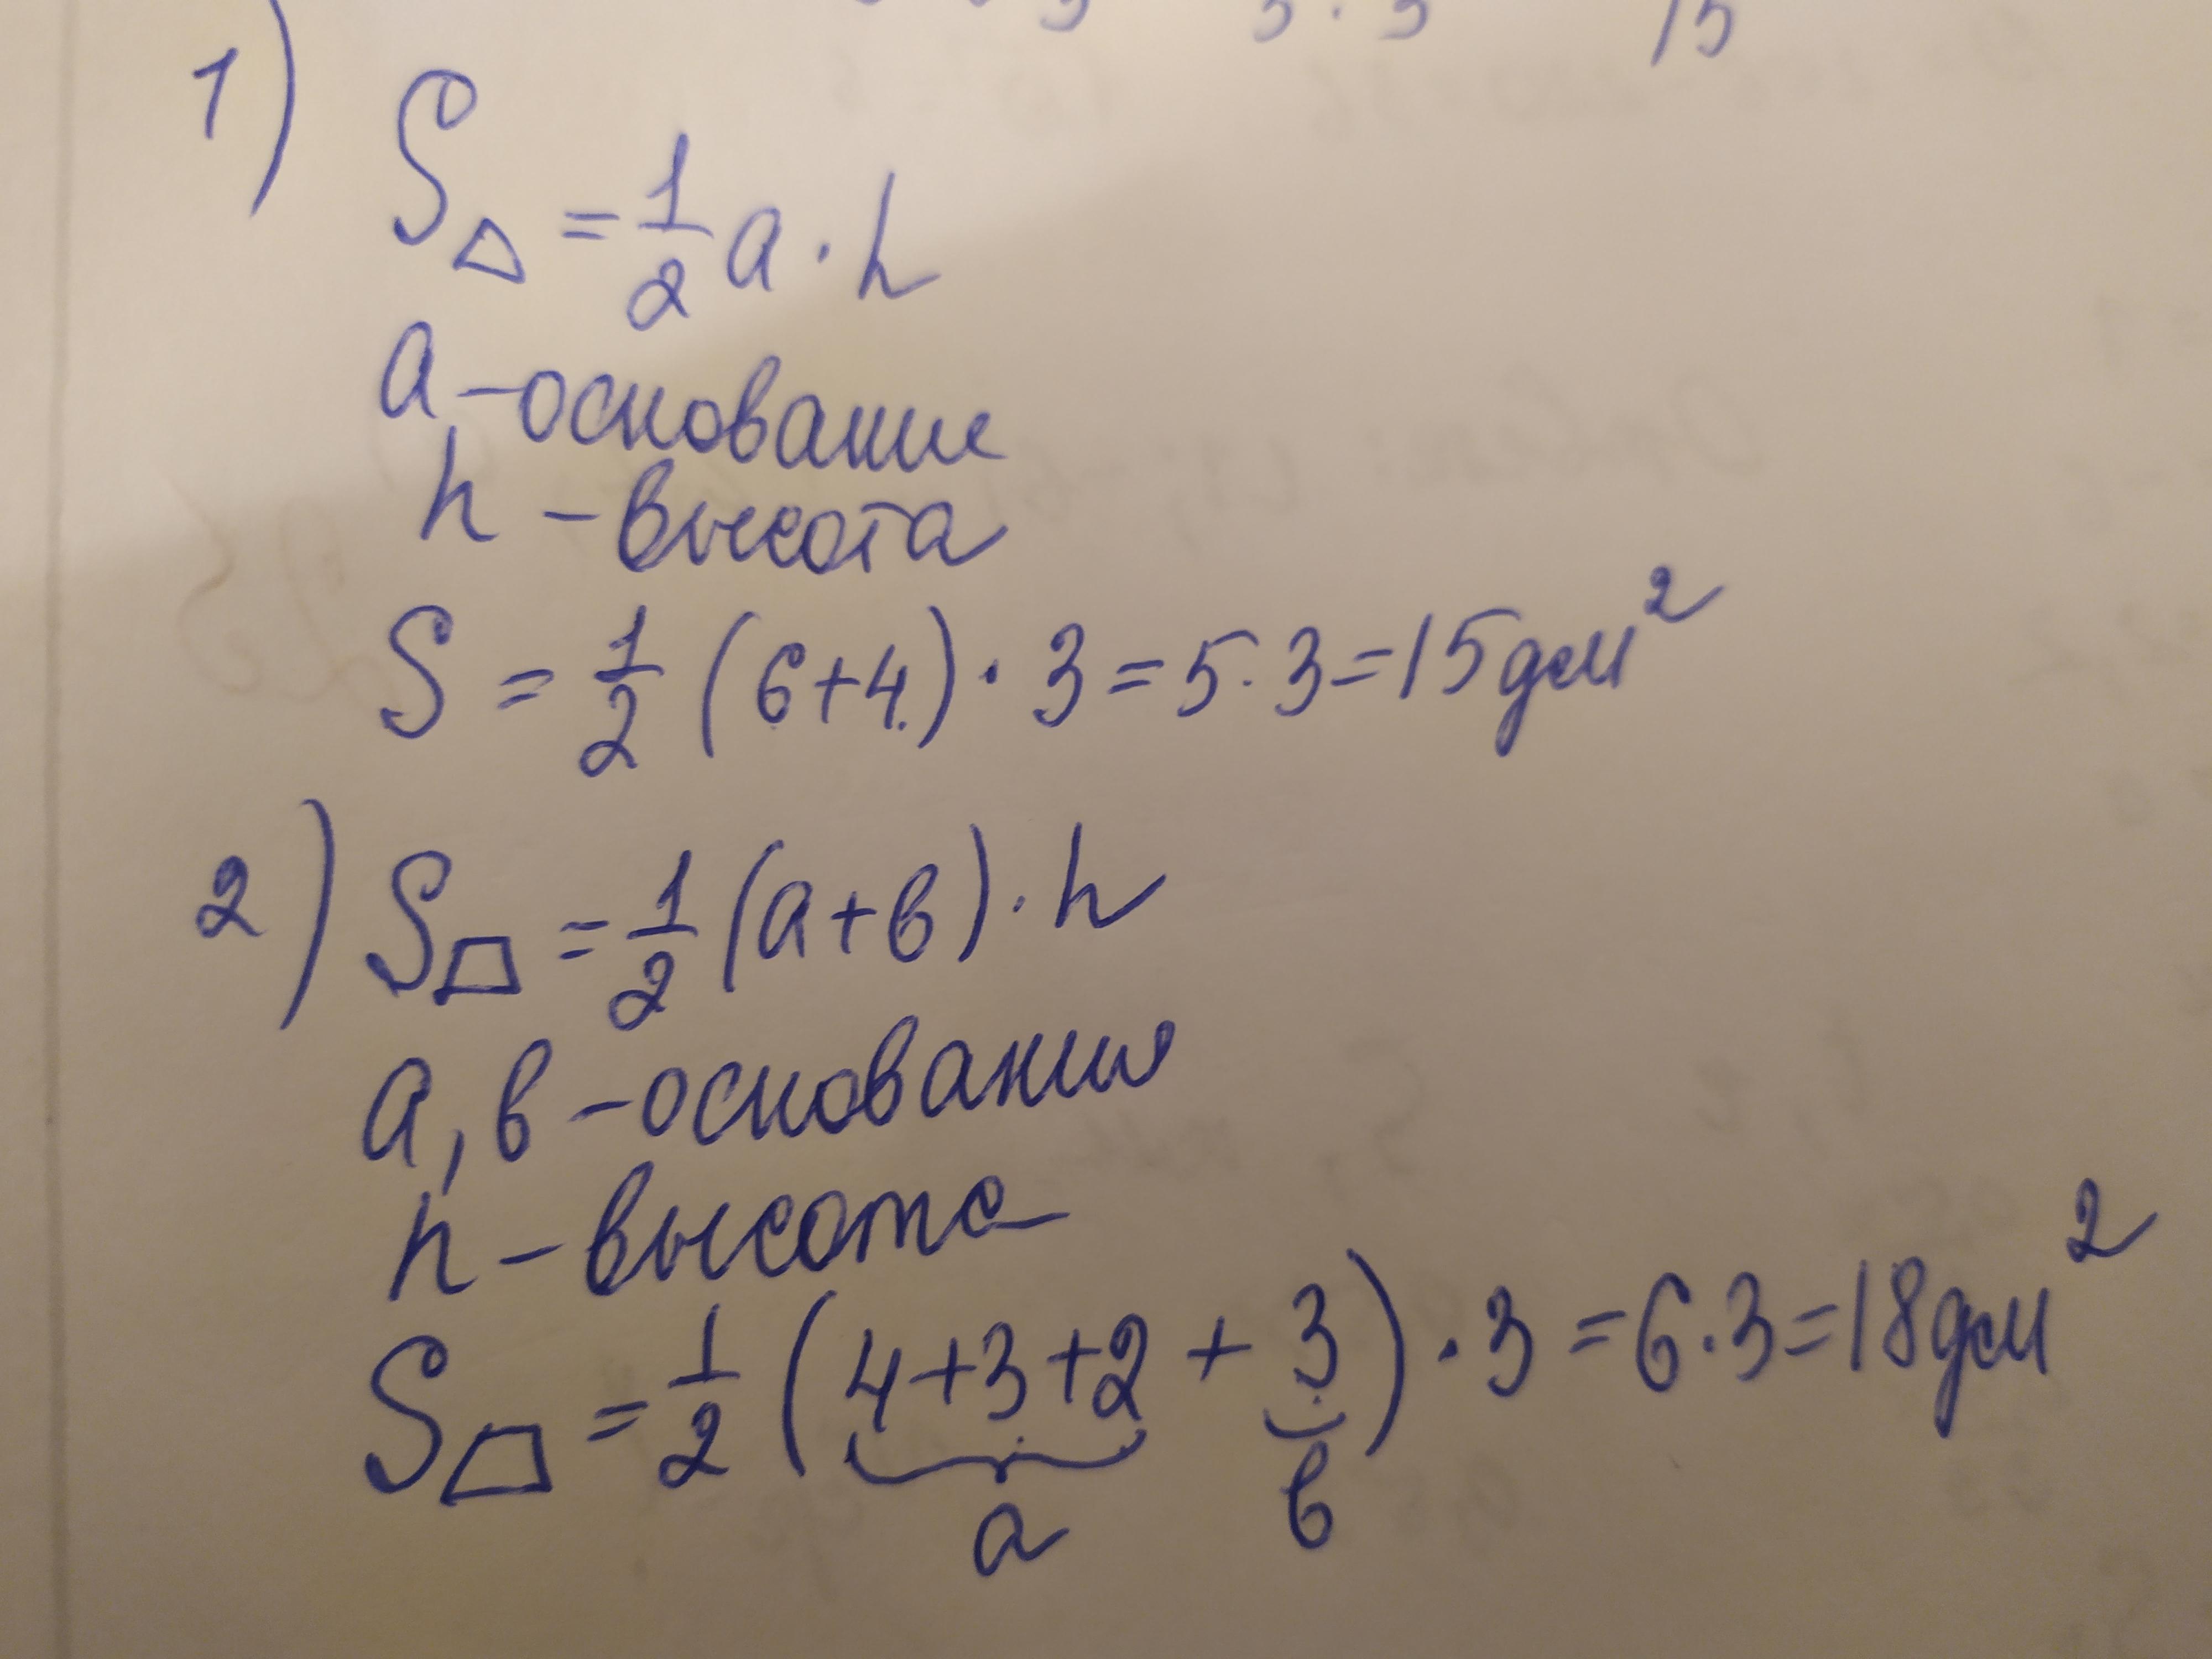 3 3 · 3 15
1)
S△ = 1/2 a · h
a – основание
h – высота
S = 1/2 (6+4) · 3 = 5 · 3 = 15 дм²
2) S⏢ = 1/2 (a+b) · h
a, b – основания
h – высота
S⏢ = 1/2 (4+3+2 + 3) · 3 = 6 · 3 = 18 дм²
a b